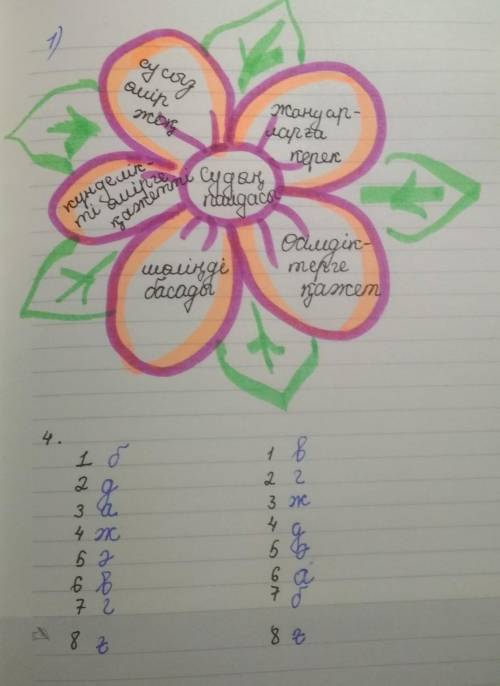 1)
су сыз
өмір
жоқ
жануар-
ларға
керек
күнделік-
ті өмірге
қажетті
Судың
пайдасы
шөліңді
басады
Өсімдік-
терге
қажет
4.
1 б
2 д
3 а
4 ж
5 ә
6 в
7 г
8 ғ
1 в
2 г
3 ж
4 д
5 ә
6 а
7 б
8 ғ